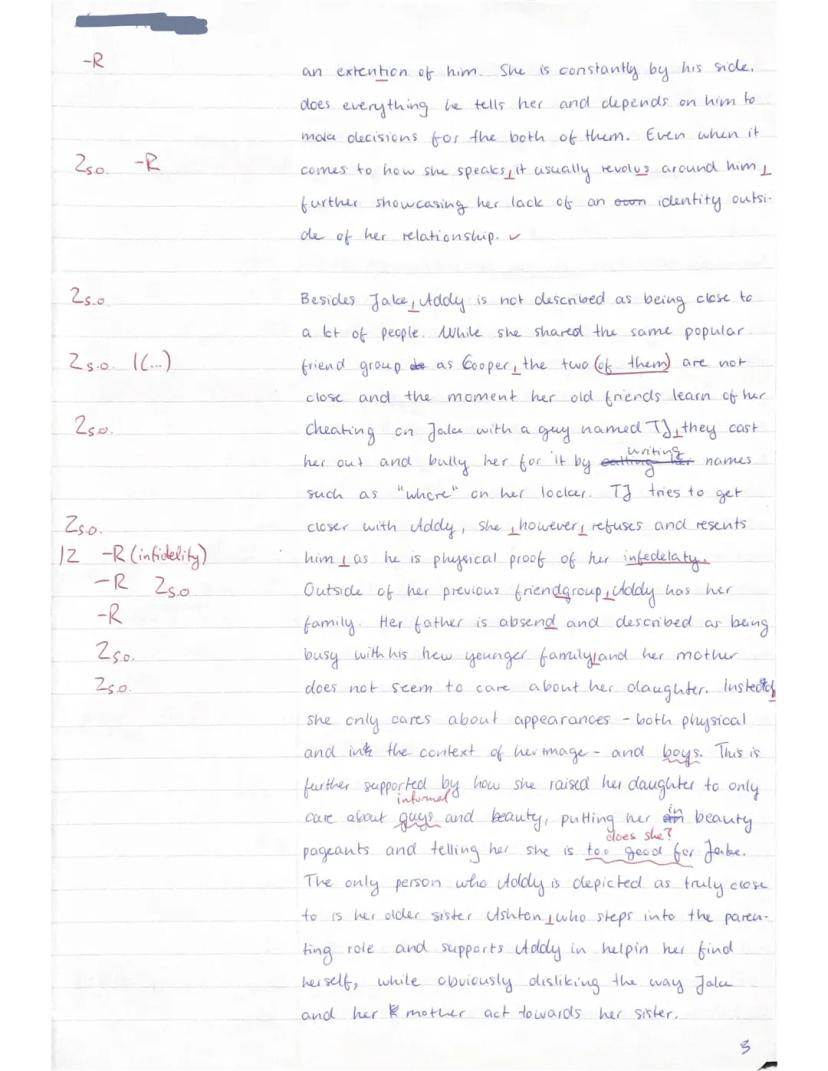 -R
an extention of him. She is constantly by his side,
does everything he tells her and depends on him to
make decisions for the both of them. Even when it
Zs.o. -R
comes to how she speaks, it usually revolvs around him,
further showcasing her lack of an own identity outsi-
de of her relationship. ✓
Zs.o.
Besides Jake, Addy is not described as being close to
a lot of people. While she shared the same popular
Zs.o. 1(...)
friend group as Cooper, the two (of them) are not
close and the moment her old friends learn of her
Zs.o.
cheating on Jake with a guy named TJ, they cast
her out and bully her for it by writing names
such as "whore" on her locker. TJ tries to get
Zs.o.
closer with Addy, she, however, refuses and resents
1Z -R (infidelity)
him, as he is physical proof of her infedelaty.
-R Zs.o.
Outside of her previous friendgroup, Addy has her
-R
family. Her father is absend and described as being
Zs.o.
busy with his new younger family, and her mother
Zs.o.
does not seem to care about her daughter. Instead,
she only cares about appearances - both physical
and in the context of her image - and boys. This is
further supported by how she raised her daughter to only
informal
care about guys and beauty, putting her in beauty
does she?
pageants and telling her she is too good for Jake.
The only person who Addy is depicted as truly close
to is her older sister Ashton, who steps into the paren-
ting role and supports Addy in helpin her find
herself, while obviously disliking the way Jake
and her mother act towards her sister.
3